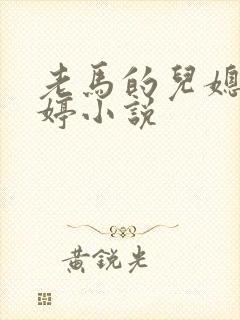 老馬的兒媳
婷小說
黃銳光